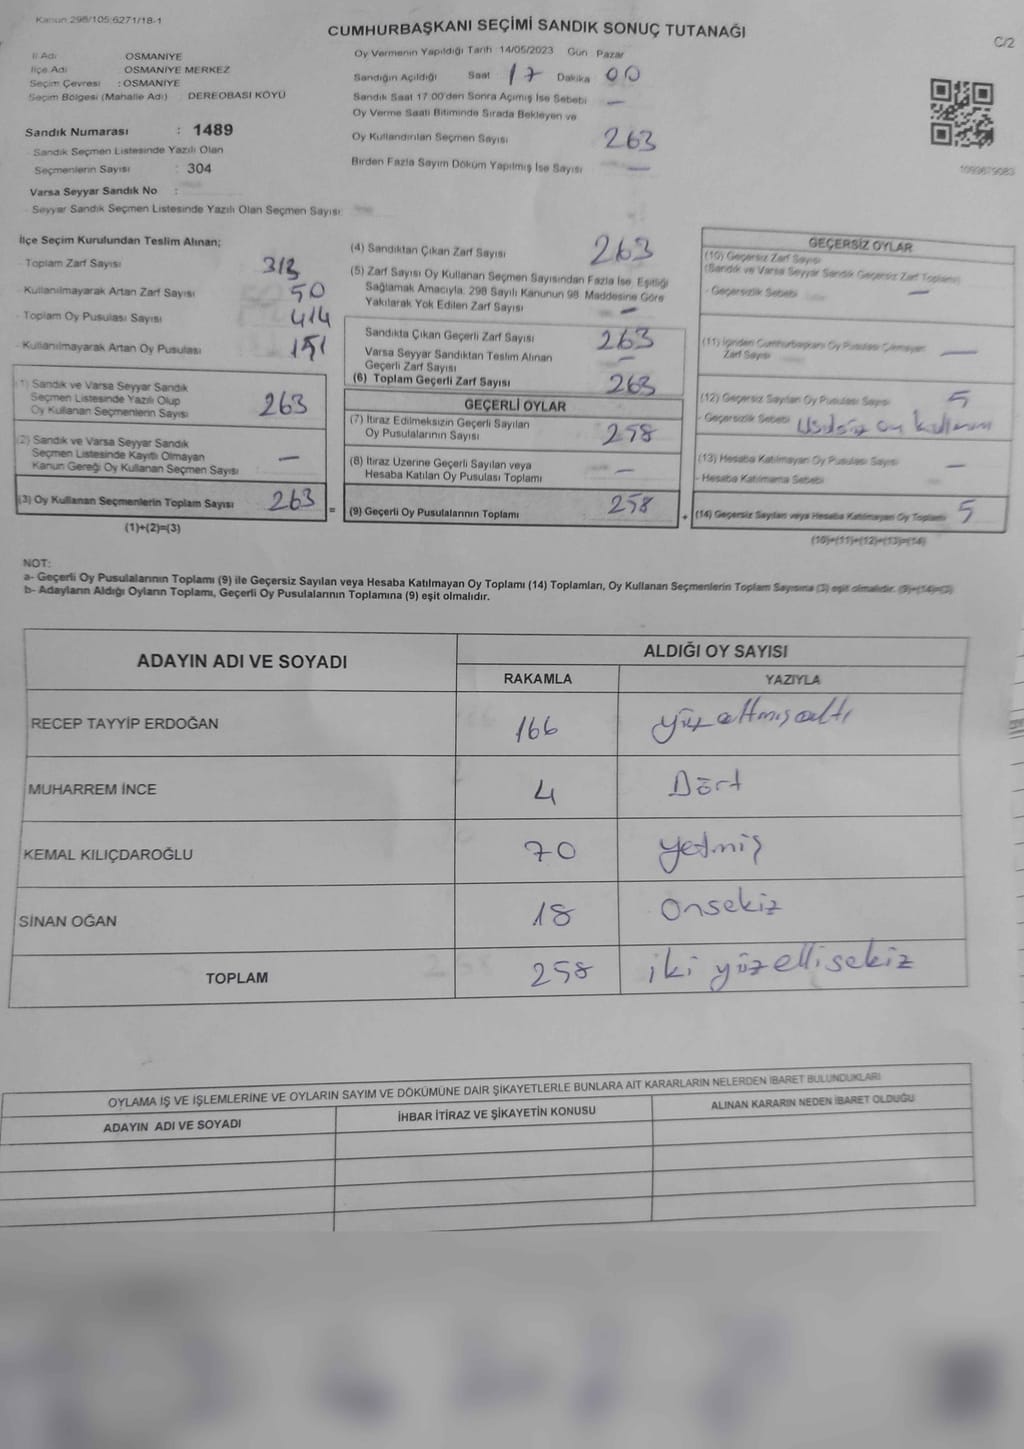 Kanun 298/105,6271/18-1
CUMHURBAŞKANI SEÇİMİ SANDIK SONUÇ TUTANAĞI
C/2
İl Adı : OSMANİYE
İlçe Adı : OSMANİYE MERKEZ
Seçim Çevresi : OSMANİYE
Seçim Bölgesi (Mahalle Adı) : DEREOBASI KÖYÜ
Sandık Numarası : 1489
Sandık Seçmen Listesinde Yazılı Olan
Seçmenlerin Sayısı : 304
Varsa Seyyar Sandık No :
Seyyar Sandık Seçmen Listesinde Yazılı Olan Seçmen Sayısı:
Oy Vermenin Yapıldığı Tarih 14/05/2023 Gün Pazar
Sandığın Açıldığı Saat 17 Dakika 00
Sandık Saat 17:00'den Sonra Açılmış İse Sebebi —
Oy Verme Saati Bitiminde Sırada Bekleyen ve
Oy Kullandırılan Seçmen Sayısı 263
Birden Fazla Sayım Döküm Yapılmış İse Sayısı —
1099679083
İlçe Seçim Kurulundan Teslim Alınan;
- Toplam Zarf Sayısı 313
- Kullanılmayarak Artan Zarf Sayısı 50
- Toplam Oy Pusulası Sayısı 414
- Kullanılmayarak Artan Oy Pusulası 151
(1) Sandık ve Varsa Seyyar Sandık
Seçmen Listesinde Yazılı Olup
Oy Kullanan Seçmenlerin Sayısı 263
(2) Sandık ve Varsa Seyyar Sandık
Seçmen Listesinde Kayıtlı Olmayan
Kanun Gereği Oy Kullanan Seçmen Sayısı —
(3) Oy Kullanan Seçmenlerin Toplam Sayısı 263
(1)+(2)=(3)
=
(4) Sandıktan Çıkan Zarf Sayısı 263
(5) Zarf Sayısı Oy Kullanan Seçmen Sayısından Fazla İse, Eşitliği
Sağlamak Amacıyla, 298 Sayılı Kanunun 98. Maddesine Göre
Yakılarak Yok Edilen Zarf Sayısı —
Sandıkta Çıkan Geçerli Zarf Sayısı 263
Varsa Seyyar Sandıktan Teslim Alınan
Geçerli Zarf Sayısı —
(6) Toplam Geçerli Zarf Sayısı 263
GEÇERLİ OYLAR
(7) İtiraz Edilmeksizin Geçerli Sayılan
Oy Pusulalarının Sayısı 258
(8) İtiraz Üzerine Geçerli Sayılan veya
Hesaba Katılan Oy Pusulası Toplamı —
(9) Geçerli Oy Pusulalarının Toplamı 258
+
GEÇERSİZ OYLAR
(10) Geçersiz Zarf Sayısı
(Sandık ve Varsa Seyyar Sandık Geçersiz Zarf Toplamı)
- Geçersizlik Sebebi —
(11) İçinden Cumhurbaşkanı Oy Pusulası Çıkmayan —
Zarf Sayısı
(12) Geçersiz Sayılan Oy Pusulası Sayısı 5
- Geçersizlik Sebebi Usulsüz oy kullanım
(13) Hesaba Katılmayan Oy Pusulası Sayısı —
- Hesaba Katılmama Sebebi
(14) Geçersiz Sayılan veya Hesaba Katılmayan Oy Toplamı 5
(10)+(11)+(12)+(13)=(14)
NOT:
a- Geçerli Oy Pusulalarının Toplamı (9) ile Geçersiz Sayılan veya Hesaba Katılmayan Oy Toplamı (14) Toplamları, Oy Kullanan Seçmenlerin Toplam Sayısına (3) eşit olmalıdır. (9)+(14)=(3)
b- Adayların Aldığı Oyların Toplamı, Geçerli Oy Pusulalarının Toplamına (9) eşit olmalıdır.
ADAYIN ADI VE SOYADI
ALDIĞI OY SAYISI
RAKAMLA YAZIYLA
RECEP TAYYİP ERDOĞAN 166 yüzaltmışaltı
MUHARREM İNCE 4 Dört
KEMAL KILIÇDAROĞLU 70 yetmiş
SİNAN OĞAN 18 Onsekiz
TOPLAM 258 iki yüzellisekiz
OYLAMA İŞ VE İŞLEMLERİNE VE OYLARIN SAYIM VE DÖKÜMÜNE DAİR ŞİKAYETLERLE BUNLARA AİT KARARLARIN NELERDEN İBARET BULUNDUKLARI
ADAYIN ADI VE SOYADI İHBAR İTİRAZ VE ŞİKAYETİN KONUSU ALINAN KARARIN NEDEN İBARET OLDUĞU